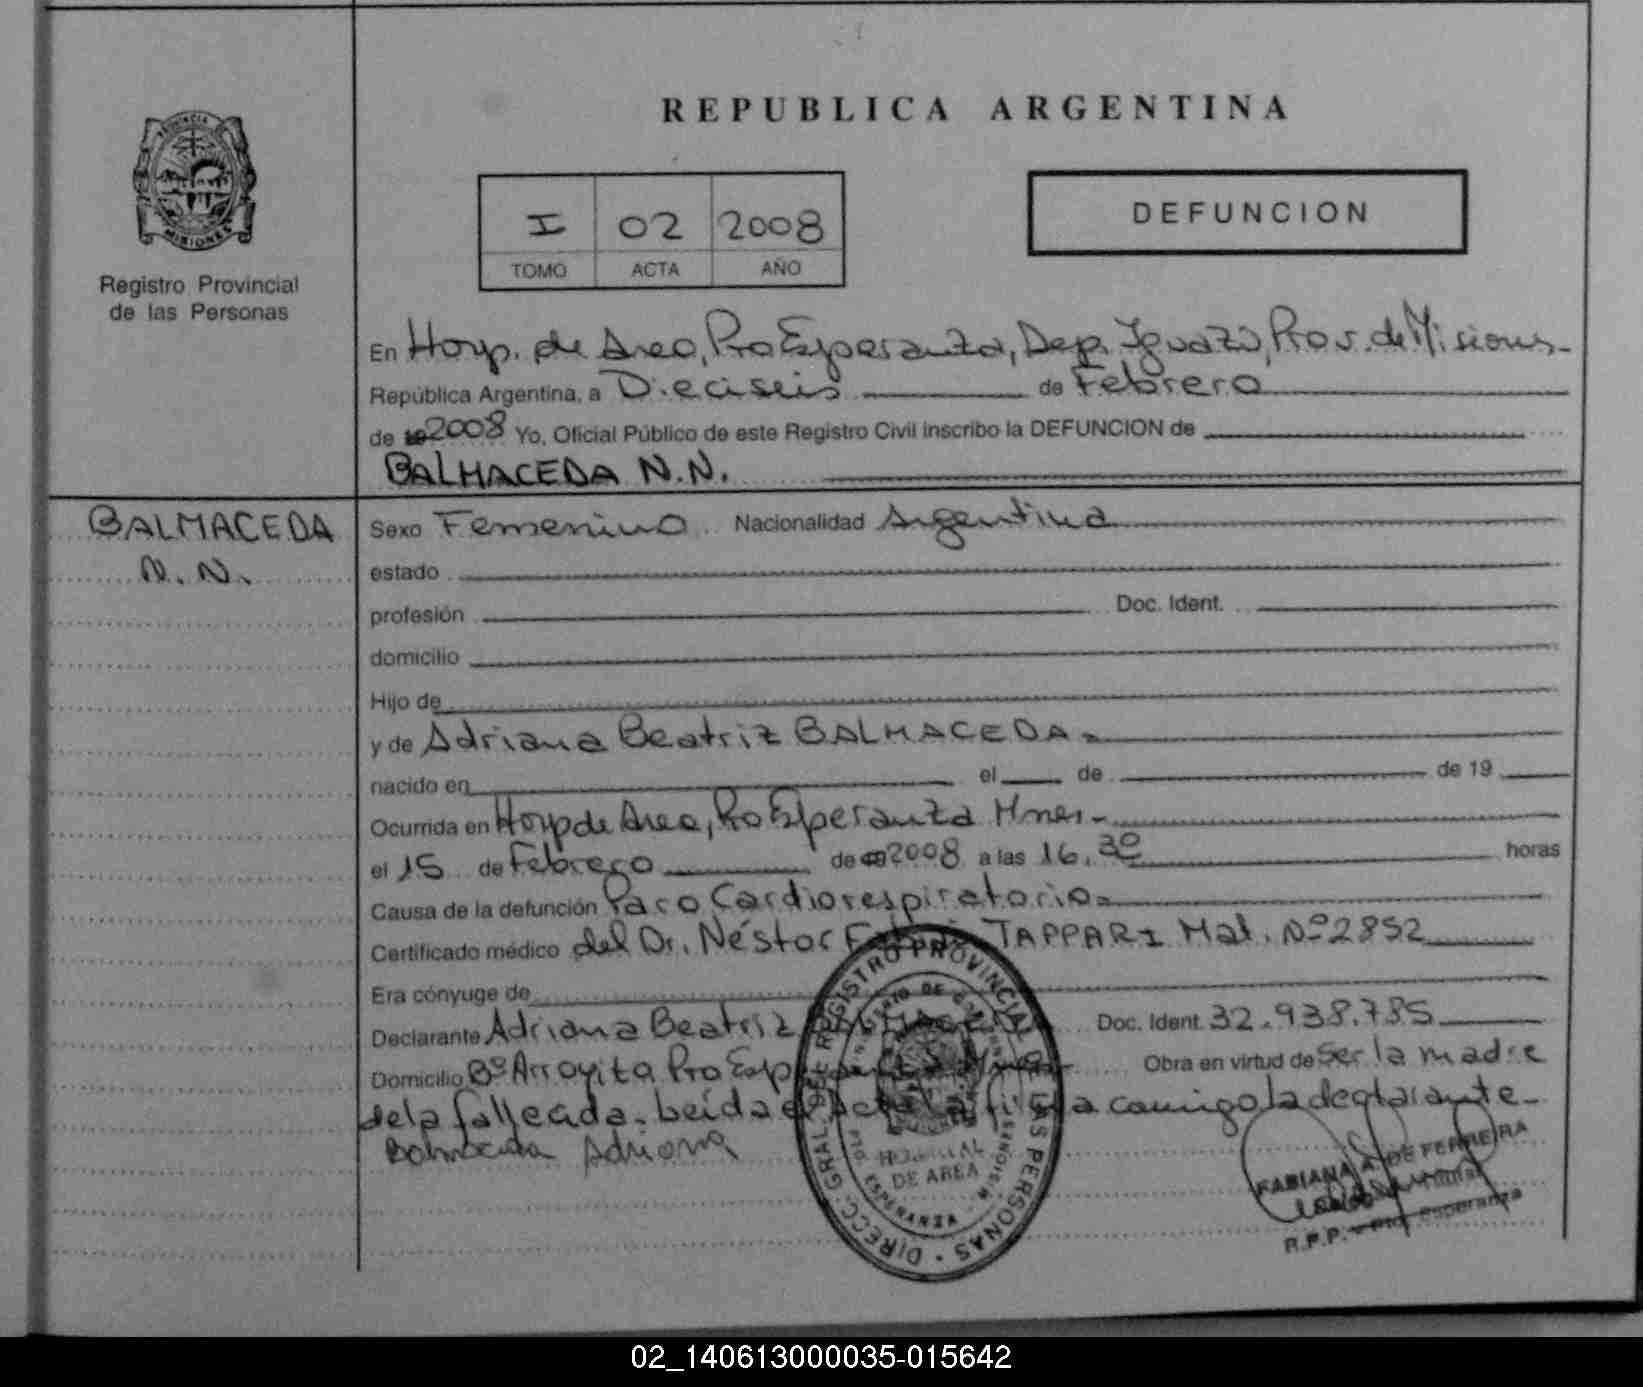 REPUBLICA ARGENTINA
PROVINCIA DE
MISIONES
Registro Provincial
de las Personas
I 02 2008
TOMO ACTA AÑO
DEFUNCION
En Hosp. de Area, Pto Esperanza, Dep. Iguazú, Prov. de Misiones-
República Argentina, a Dieciseis de Febrero
de 2008 Yo, Oficial Público de este Registro Civil inscribo la DEFUNCION de
BALMACEDA N.N.
BALMACEDA
N.N.
Sexo Femenino Nacionalidad Argentina
estado
profesión Doc. Ident.
domicilio
Hijo de
y de Adriana Beatriz BALMACEDA.-
nacido en el de de 19
Ocurrida en Hosp de Area, Pto Esperanza Mnes.-
el 15 de Febrero de 2008 a las 16.30 horas
Causa de la defunción Paro Cardiorespiratorio.-
Certificado médico del Dr. Néstor TAPPARI Mat. Nº 2852
Era cónyuge de
Declarante Adriana Beatriz Doc. Ident. 32.938.785
Domicilio Bº Arroyito Pto Esperanza Obra en virtud de ser la madre
de la fallecida. Leída el Acta la firma conmigo la declarante-
Balmaceda Adriana
DIRECC. GRAL. DEL REGISTRO PROVINCIAL DE LAS PERSONAS
HOSPITAL
DE AREA
ESPERANZA
FABIANA A. DE FERREIRA
R.P.P. - Pto. Esperanza
02_140613000035-015642